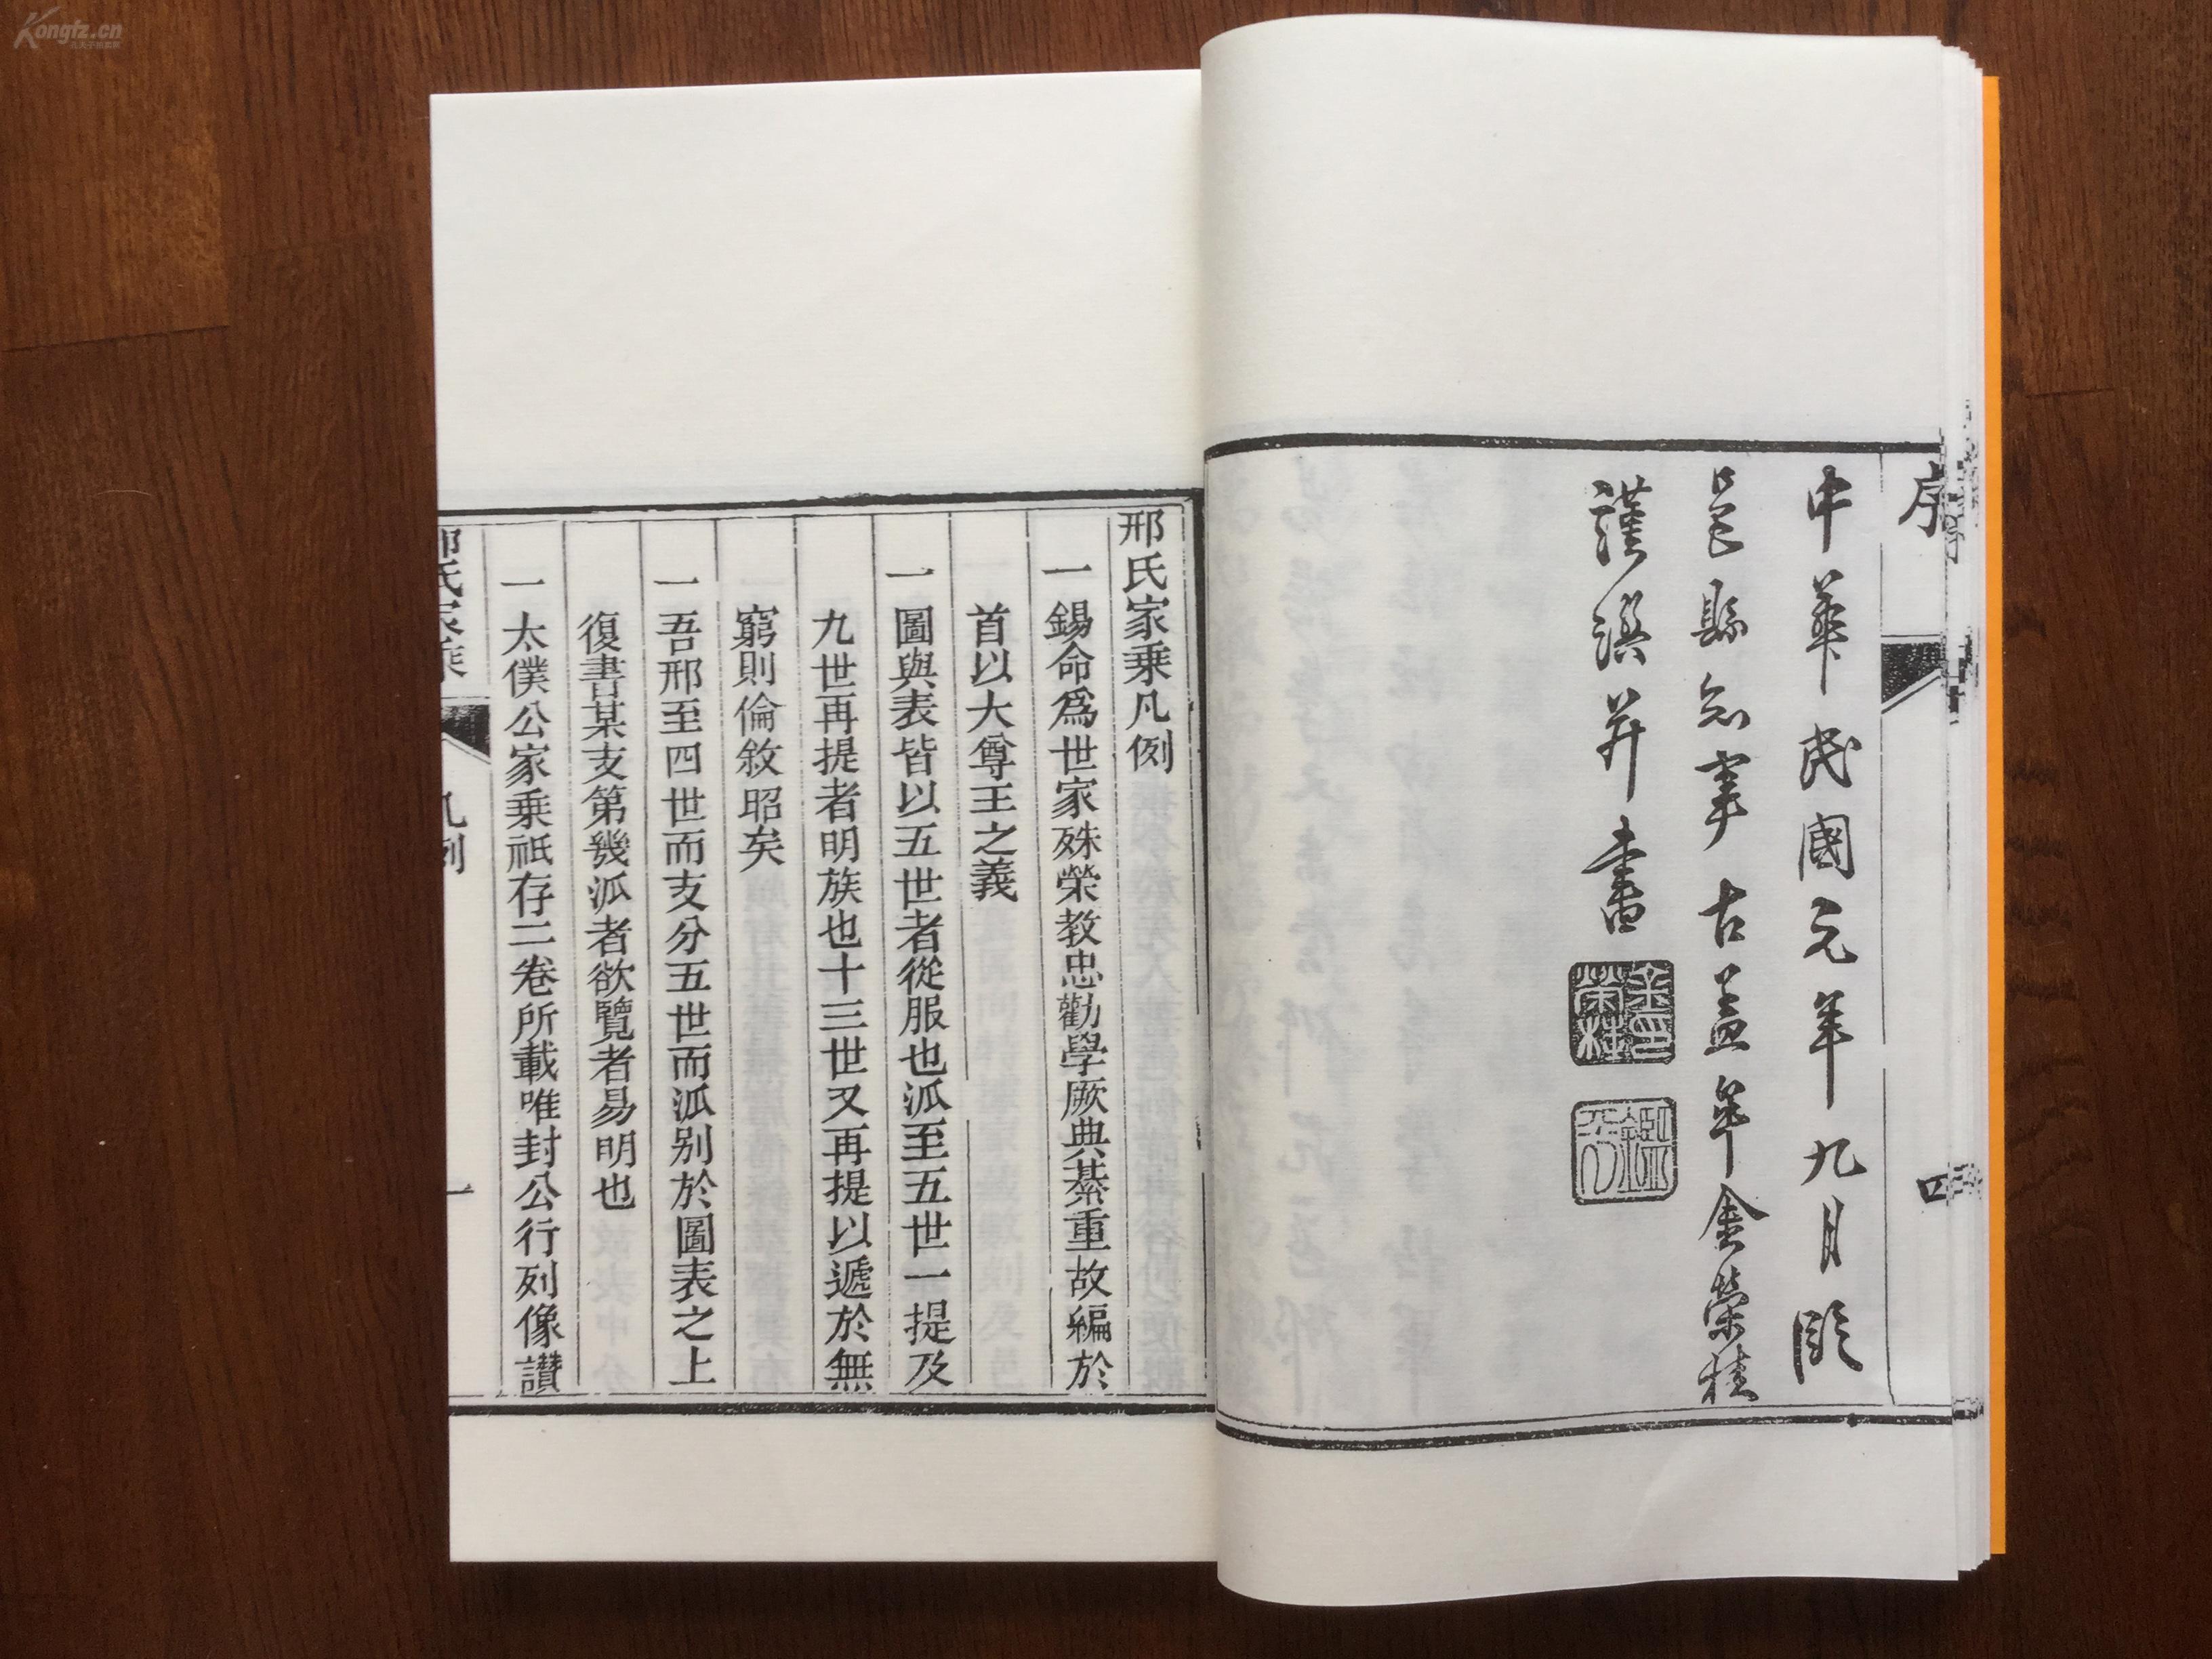 序
四
中華民國元年九月
邑縣知事古盖年金榮桂
謹譔并書
金印榮桂
邢氏家乘凡例
一錫命爲世家殊榮教忠勸學厥典綦重故編於
首以大尊王之義
一圖與表皆以五世者從服也派至五世一提及
九世再提者明族也十三世又再提以遞於無
窮則倫敘昭矣
一吾邢至四世而支分五世而派别於圖表之上
復書某支第幾派者欲覽者易明也
一太僕公家乘祇存二卷所載唯封公行列像讃
邢氏家乘
凡例
一
Kongfz.cn